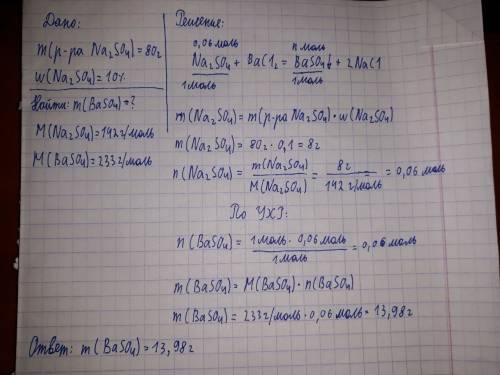 Дано:
m(р-ра Na₂SO₄) = 80г
w(Na₂SO₄) = 10%
Найти: m(BaSO₄) = ?
M(Na₂SO₄) = 142 г/моль
M(BaSO₄) = 233 г/моль
Решение:
0,06 моль n моль
Na₂SO₄ + BaCl₂ = BaSO₄↓ + 2NaCl
1 моль 1 моль
m(Na₂SO₄) = m(р-ра Na₂SO₄) · w(Na₂SO₄)
m(Na₂SO₄) = 80г · 0,1 = 8г
n(Na₂SO₄) = m(Na₂SO₄) / M(Na₂SO₄) = 8г / 142 г/моль = 0,06 моль
По УХР:
n(BaSO₄) = 1 моль · 0,06 моль / 1 моль = 0,06 моль
m(BaSO₄) = M(BaSO₄) · n(BaSO₄)
m(BaSO₄) = 233 г/моль · 0,06 моль = 13,98г
Ответ: m(BaSO₄) = 13,98г